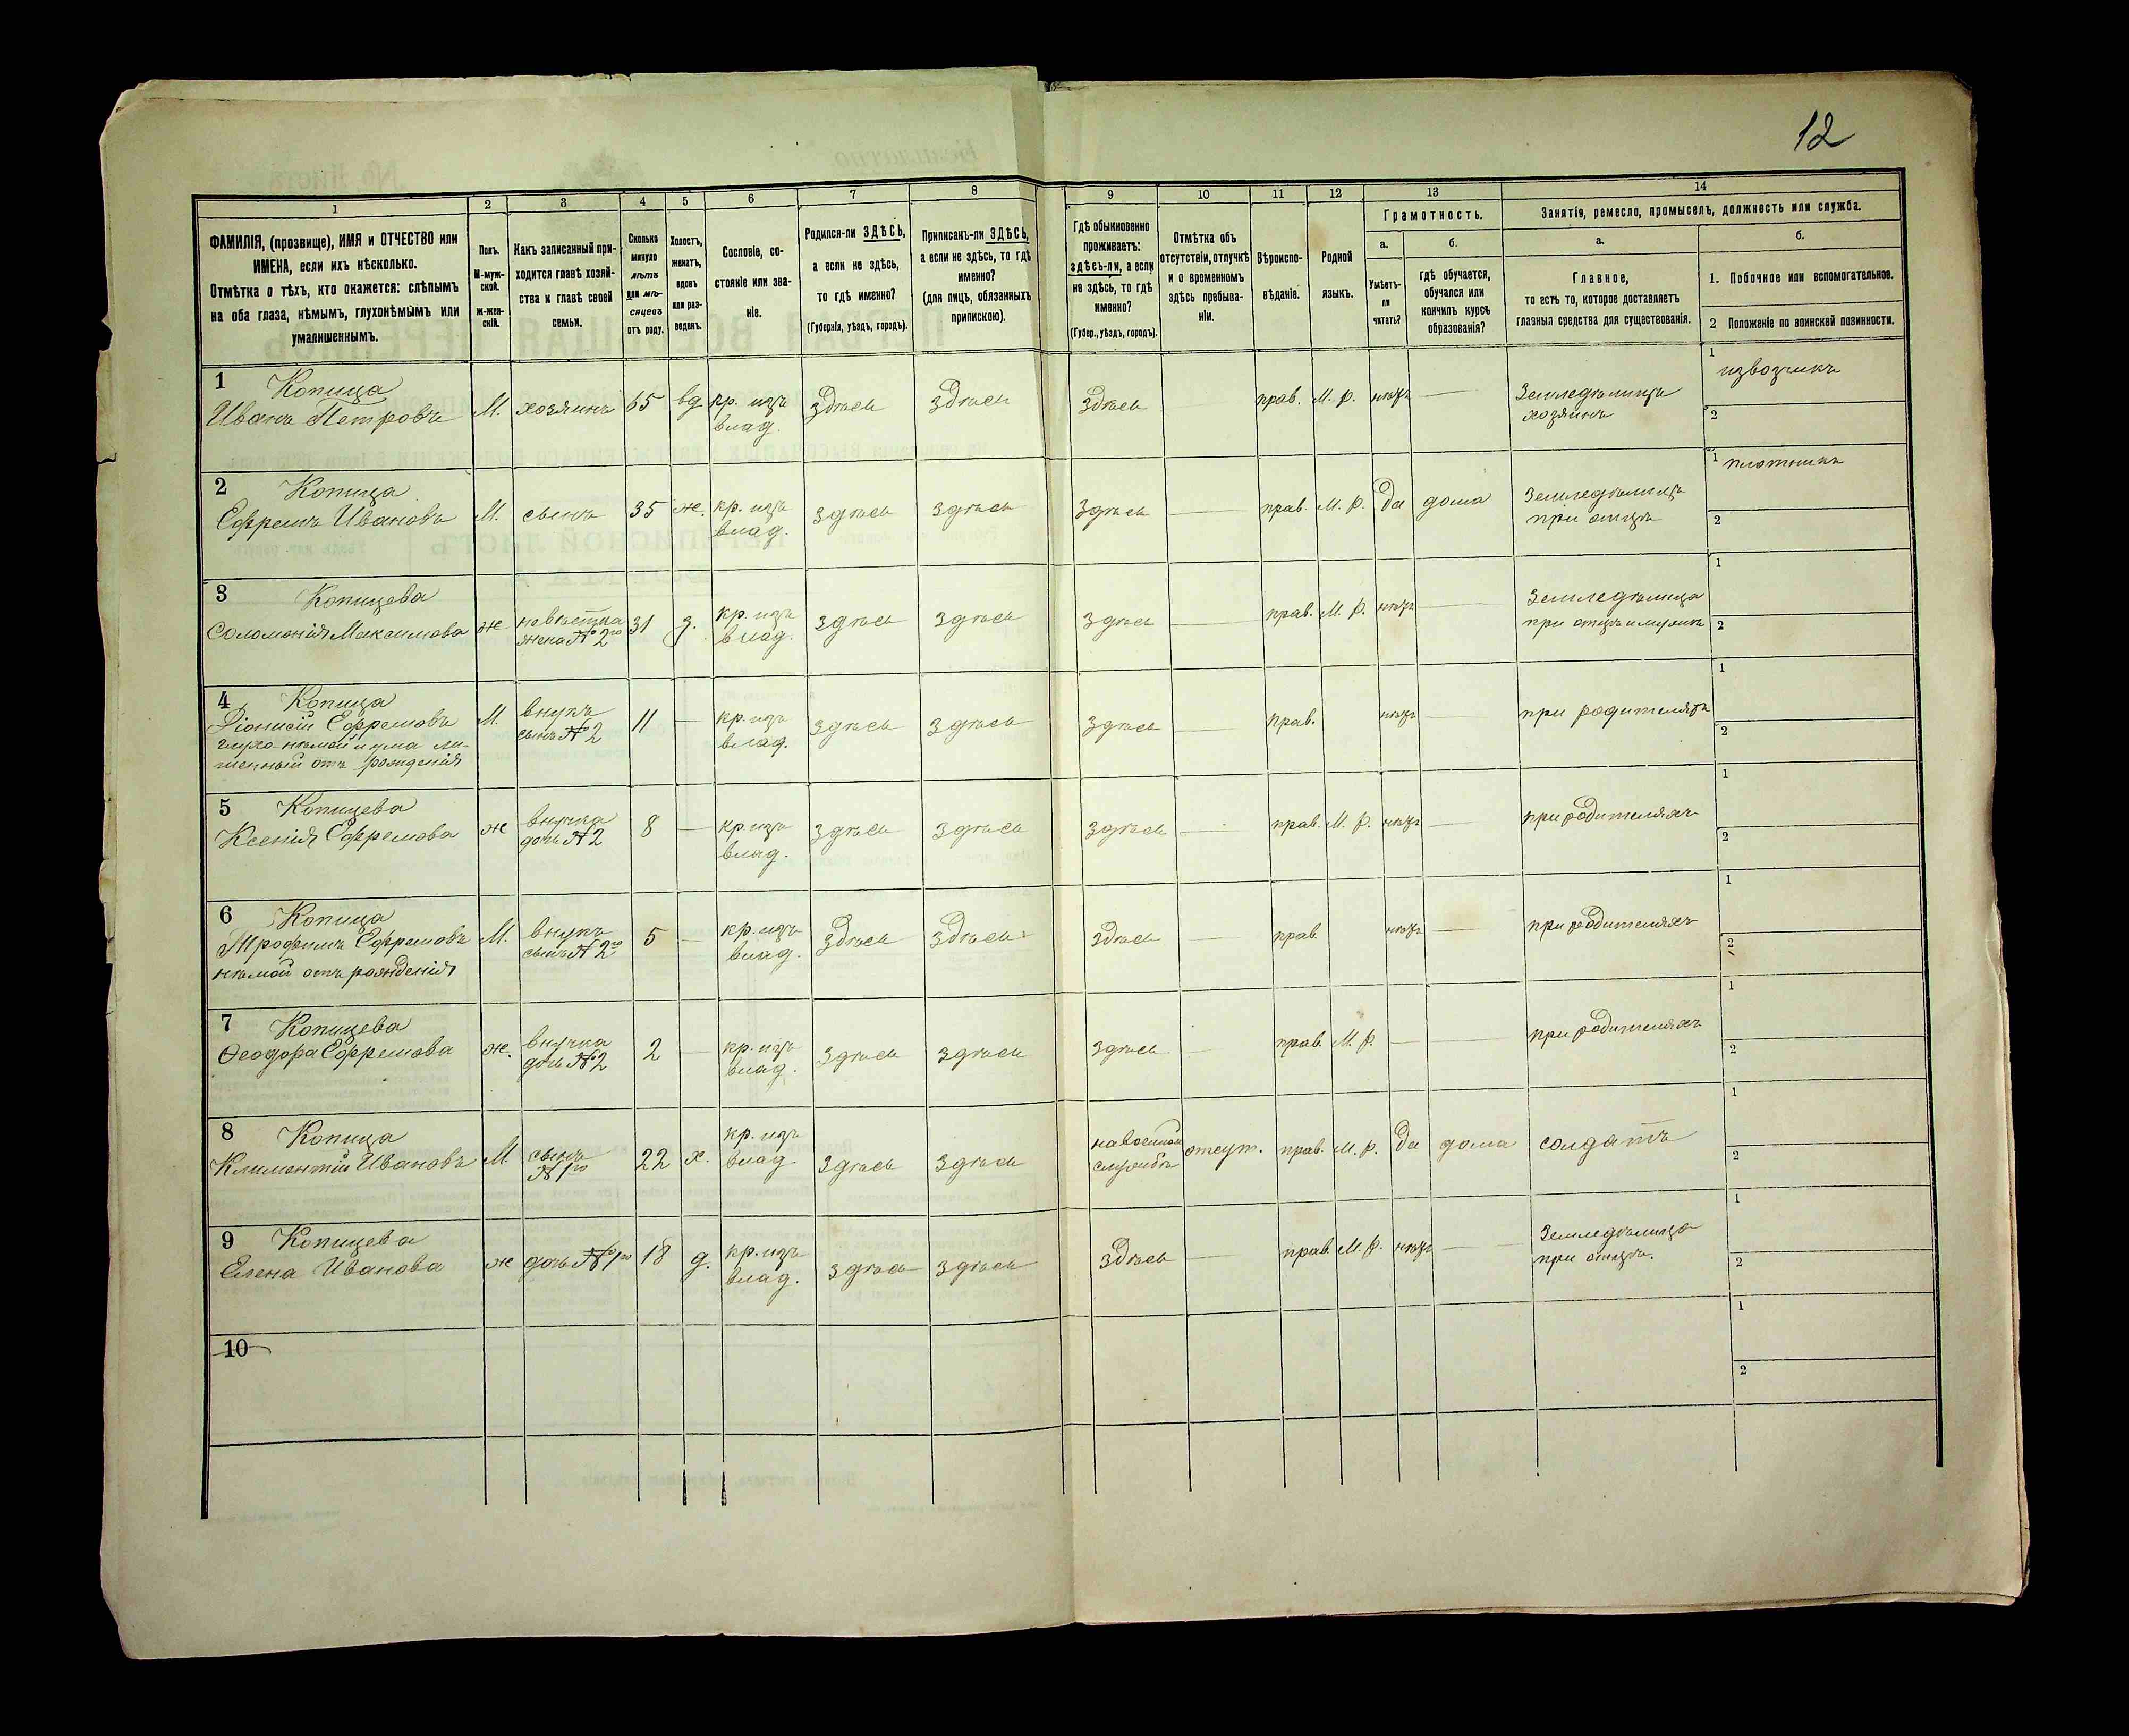 12
1
2
3
4
5
6
7
8
9
10
11
12
13
14
ФАМИЛІЯ, (прозвище), ИМЯ и ОТЧЕСТВО или
ИМЕНА, если ихъ нѣсколько.
Отмѣтка о тѣхъ, кто окажется: слѣпымъ
на оба глаза, нѣмымъ, глухонѣмымъ или
умалишеннымъ.
Полъ.
М-муж-
ской.
Ж-жен-
скій.
Какъ записанный при-
ходится главѣ хозяй-
ства и главѣ своей
семьи.
Сколько
минуло
лѣтъ
или мѣ-
сяцевъ
отъ роду.
Холостъ,
женатъ,
вдовъ
или раз-
веденъ.
Сословіе, со-
стояніе или зва-
ніе.
Родился-ли ЗДѢСЬ,
а если не здѣсь,
то гдѣ именно?
(Губернія, уѣздъ, городъ).
Приписанъ-ли ЗДѢСЬ,
а если не здѣсь, то гдѣ
именно?
(для лицъ, обязанныхъ
припискою).
Гдѣ обыкновенно
проживаетъ:
здѣсь-ли, а если
не здѣсь, то гдѣ
именно?
(Губер., уѣздъ, городъ).
Отмѣтка объ
отсутствіи, отлучкѣ
и о временномъ
здѣсь пребыва-
ніи.
Вѣроиспо-
вѣданіе.
Родной
языкъ.
Грамотность.
а.
Умѣетъ-
ли
читать?
б.
гдѣ обучается,
обучался или
кончилъ курсъ
образованія?
Занятія, ремесло, промыселъ, должность или служба.
а.
Главное,
то есть то, которое доставляетъ
главныя средства для существованія.
б.
1. Побочное или вспомогательное.
2 Положеніе по воинской повинности.
1 Копица
Иванъ Петровъ
М.
хозяинъ
65
вд
кр. изъ
влад.
здѣсь
здѣсь
здѣсь
прав.
М. р.
нѣтъ
—
Земледѣлецъ
хозяинъ
1
извозчикъ
2
2 Копица
Ефремъ Ивановъ
М.
сынъ
35
ж.
кр. изъ
влад.
здѣсь
здѣсь
здѣсь
—
прав.
М. р.
да
дома
Земледѣлецъ
при отцѣ
1 плотникъ
2
3 Копицева
Соломонія Максимова
ж
невѣстка
жена № 2го
31
з.
кр. изъ
влад.
здѣсь
здѣсь
здѣсь
—
прав.
М. р.
нѣтъ
—
Земледѣлица
при отцѣ и мужѣ
1
2
4 Копица
Діонисій Ефремовъ
глухо-нѣмой и ума ли-
шенный отъ рожденія
М.
внукъ
сынъ № 2
11
—
кр. изъ
влад.
здѣсь
здѣсь
здѣсь
—
прав.
нѣтъ
—
при родителяхъ
1
2
5 Копицева
Ксенія Ефремова
ж
внучка
дочь № 2
8
—
кр. изъ
влад.
здѣсь
здѣсь
здѣсь
—
прав.
М. р.
нѣтъ
—
при родителяхъ
1
2
6 Копица
Трофимъ Ефремовъ
нѣмой отъ рожденія
М.
внукъ
сынъ № 2го
5
—
кр. изъ
влад.
здѣсь
здѣсь
здѣсь
—
прав.
нѣтъ
—
при родителяхъ
1
2
7 Копицева
Ѳеодора Ефремова
ж.
внучка
дочь № 2
2
—
кр. изъ
влад.
здѣсь
здѣсь
здѣсь
—
прав.
М. р.
—
—
при родителяхъ
1
2
8 Копица
Климентій Ивановъ
М.
сынъ
№ 1го
22
х.
кр. изъ
влад.
здѣсь
здѣсь
на военной
службѣ
отсут.
прав.
М. р.
да
дома
солдатъ
1
2
9 Копицева
Елена Иванова
ж
дочь № 1го
18
д.
кр. изъ
влад.
здѣсь
здѣсь
здѣсь
—
прав.
М. р.
нѣтъ
—
Земледѣлица
при отцѣ.
1
2
10
1
2